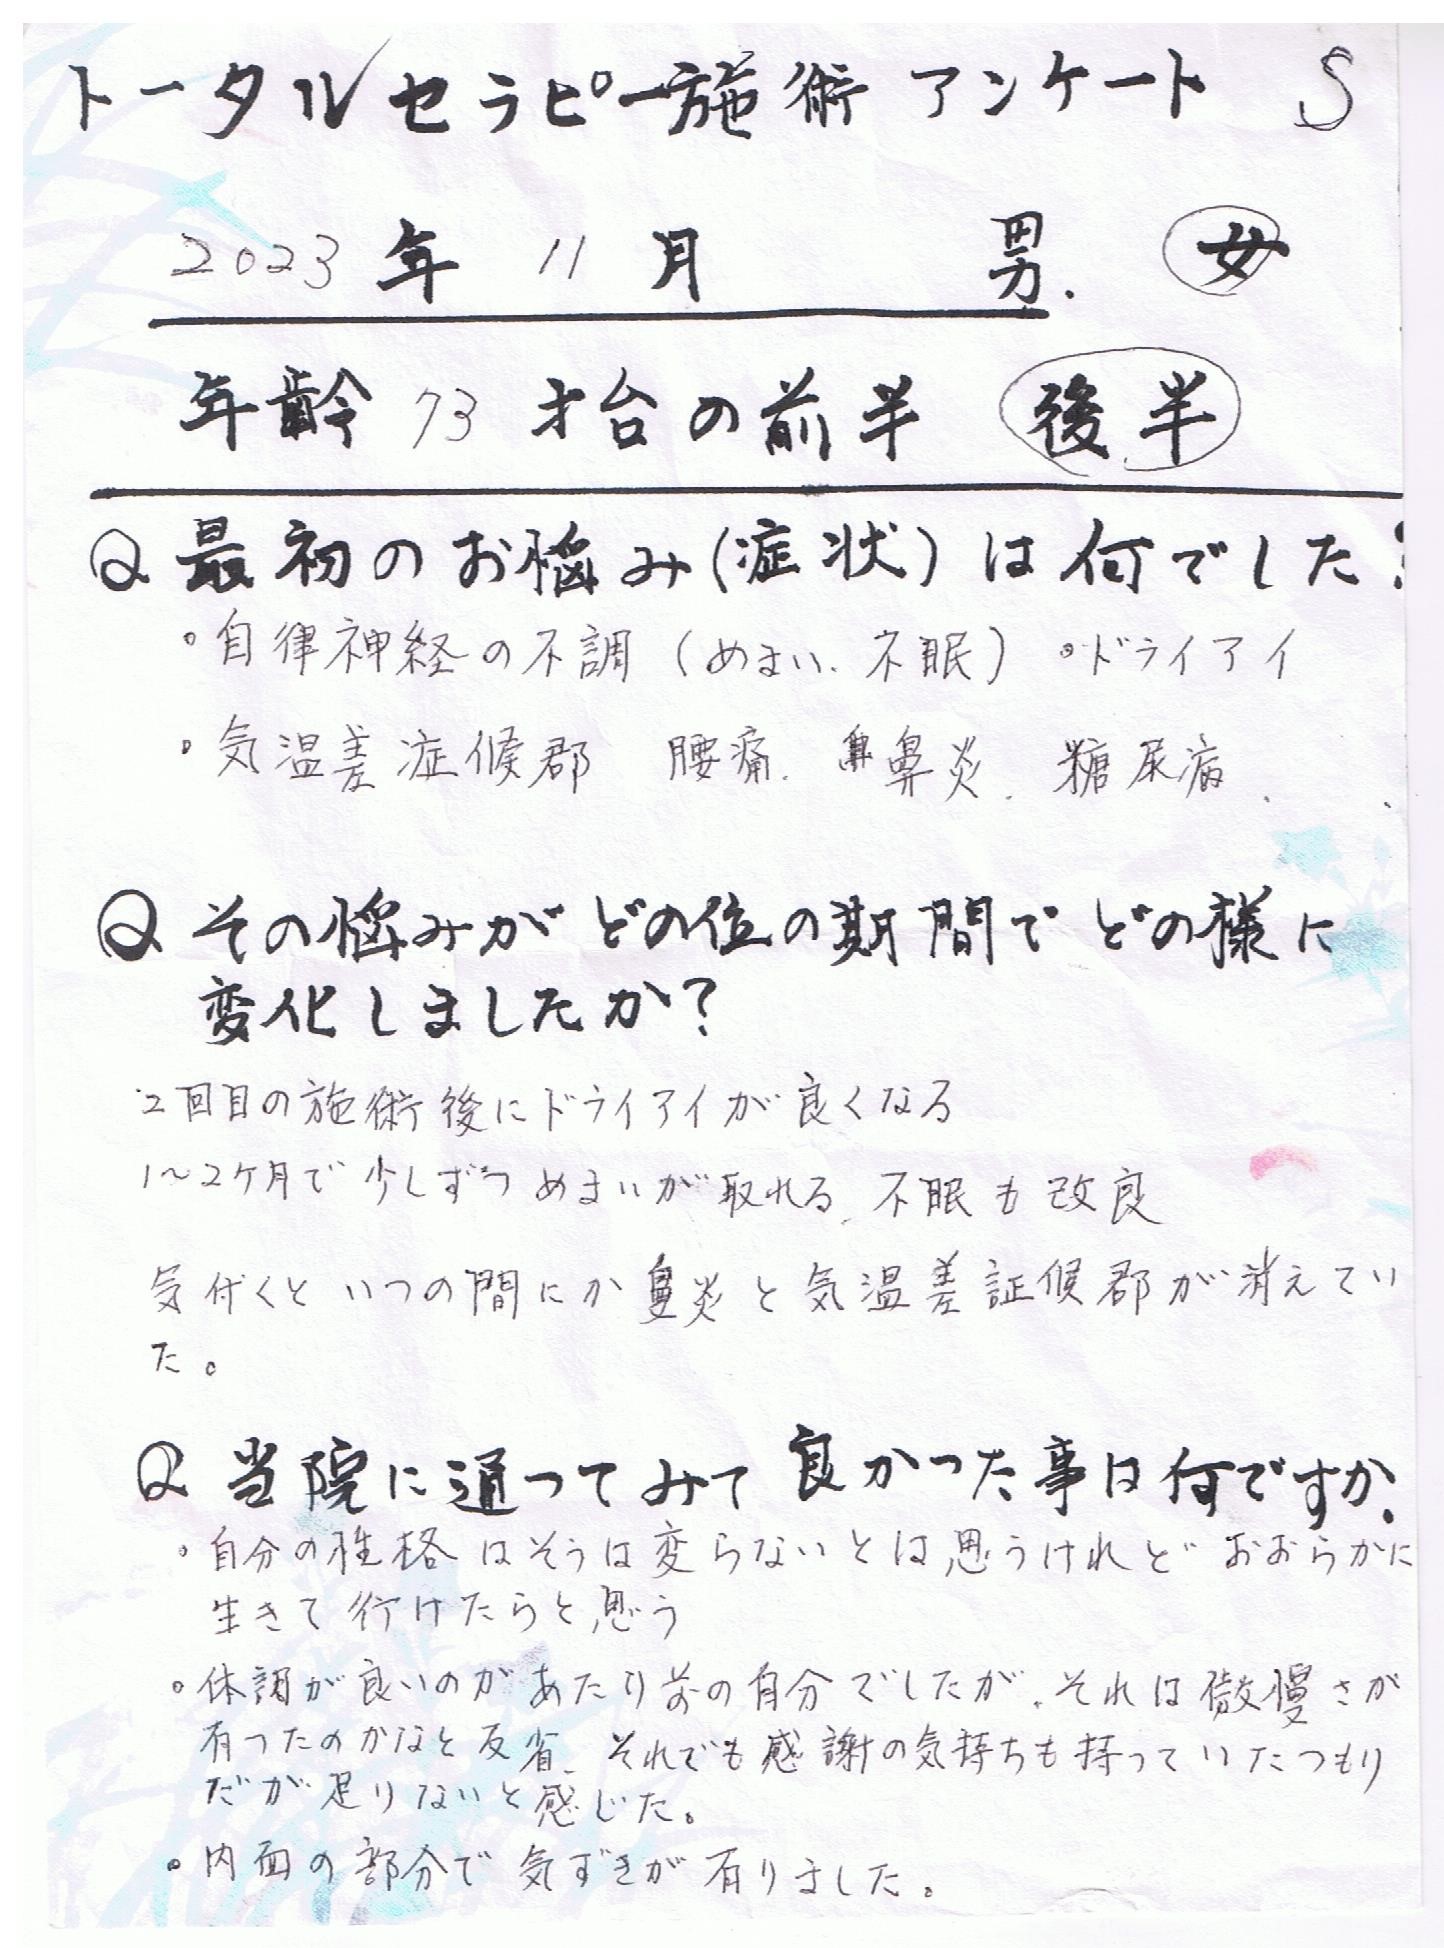 トータルセラピー施術アンケート S
2023年 11月 男. 女
年齢 73才台の前半 後半
Q 最初のお悩み(症状)は何でした?
・自律神経の不調(めまい、不眠) ・ドライアイ
・気温差症候郡 腰痛、鼻炎、糖尿病、
Q その悩みがどの位の期間でどの様に
変化しましたか?
2回目の施術後にドライアイが良くなる
1〜2ケ月で少しずつめまいが取れる、不眠も改良
気付くといつの間にか鼻炎と気温差証候郡が消えてい
た。
Q 当院に通ってみて良かった事は何ですか?
・自分の性格はそうは変らないとは思うけれど おおらかに
生きて行けたらと思う
・体調が良いのがあたり前の自分でしたが、それは慢さが
有ったのかなと反省、それでも感謝の気持ちも持っていたつもり
だが足りないと感じた。
・内面の部分で気ずきが有りました。